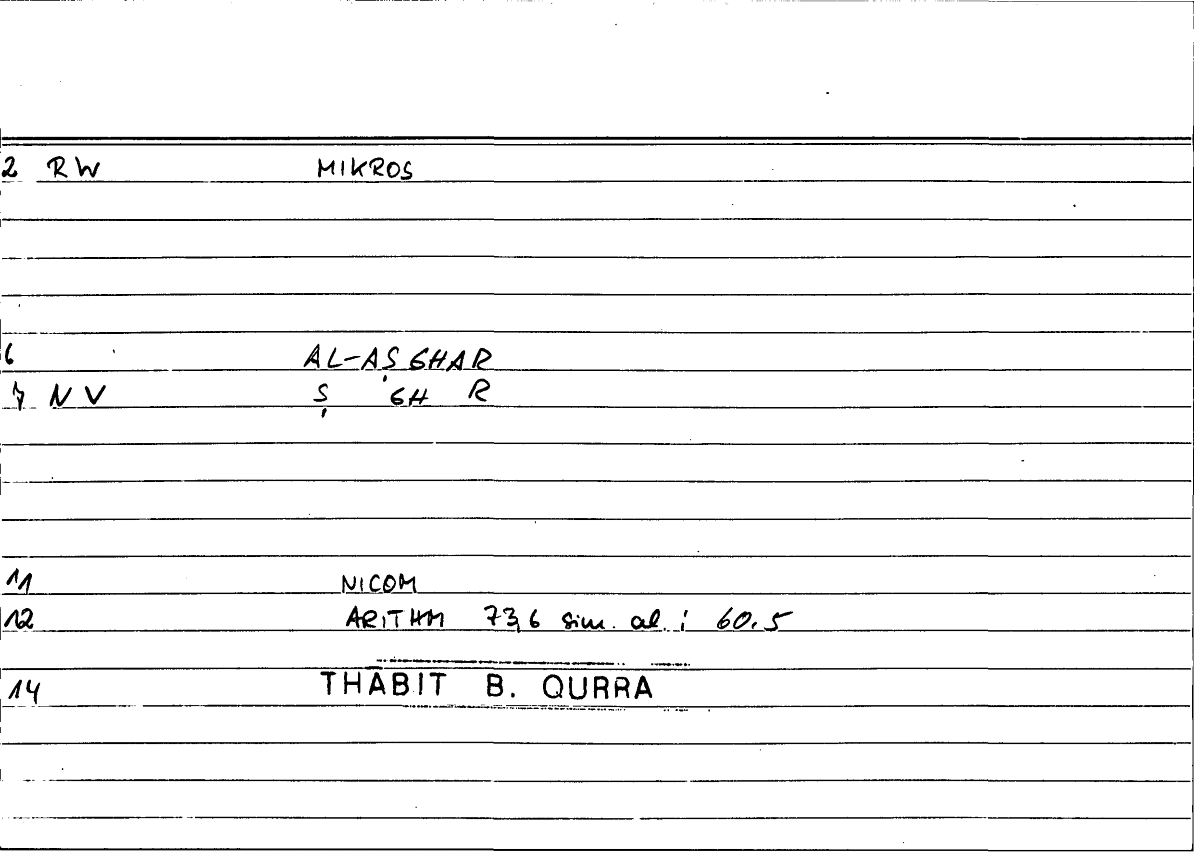 2 RW MIKROS
6 AL-AṢGHAR
7 NV Ṣ GH R
11 NICOM
12 ARITHM 73,6 sim. al. ; 60.5
14 THABIT B. QURRA